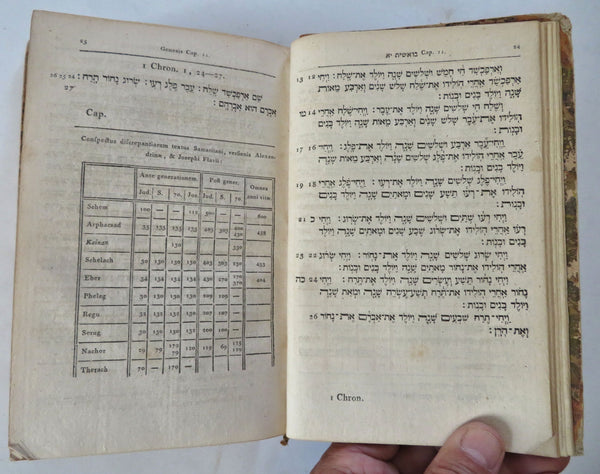 בראשית יא Cap. 11. 24
וְאַרְפַּכְשַׁד חַי חָמֵשׁ וּשְׁלֹשִׁים שָׁנָה וַיּוֹלֶד אֶת־שָׁלַח: וַיְחִי 12 13
אַרְפַּכְשַׁד אַחֲרֵי הוֹלִידוֹ אֶת־שֶׁלַח שָׁלֹשׁ שָׁנִים וְאַרְבַּע מֵאוֹת
שָׁנָה וַיּוֹלֶד בָּנִים וּבָנוֹת:
וְשֶׁלַח חַי שְׁלֹשִׁים שָׁנָה וַיּוֹלֶד אֶת־עֵבֶר: וַיְחִי־שֶׁלַח אַחֲרֵי 14
הוֹלִידוֹ אֶת־עֵבֶר שָׁלֹשׁ שָׁנִים וְאַרְבַּע מֵאוֹת שָׁנָה וַיּוֹלֶד
בָּנִים וּבָנוֹת:
וַיְחִי־עֵבֶר אַרְבַּע וּשְׁלֹשִׁים שָׁנָה וַיּוֹלֶד אֶת־פָּלֶג: וַיְחִי־ 16 17
עֵבֶר אַחֲרֵי הוֹלִידוֹ אֶת־פֶּלֶג שְׁלֹשִׁים שָׁנָה וְאַרְבַּע מֵאוֹת
שָׁנָה וַיּוֹלֶד בָּנִים וּבָנוֹת:
וַיְחִי־פֶלֶג שְׁלֹשִׁים שָׁנָה וַיּוֹלֶד אֶת־רְעוּ: וַיְחִי־פֶלֶג אַחֲרֵי 18 19
הוֹלִידוֹ אֶת־רְעוּ תֵּשַׁע שָׁנִים וּמָאתַיִם שָׁנָה וַיּוֹלֶד בָּנִים
וּבָנוֹת:
וַיְחִי רְעוּ שְׁתַּיִם וּשְׁלֹשִׁים שָׁנָה וַיּוֹלֶד אֶת־שְׂרוּג: וַיְחִי כ 21
רְעוּ אַחֲרֵי הוֹלִידוֹ אֶת־שְׂרוּג שֶׁבַע שָׁנִים וּמָאתַיִם שָׁנָה וַיּוֹלֶד
בָּנִים וּבָנוֹת:
וַיְחִי שְׂרוּג שְׁלֹשִׁים שָׁנָה וַיּוֹלֶד אֶת־נָחוֹר: וַיְחִי שְׂרוּג 22 23
אַחֲרֵי הוֹלִידוֹ אֶת־נָחוֹר מָאתַיִם שָׁנָה וַיּוֹלֶד בָּנִים וּבָנוֹת:
וַיְחִי נָחוֹר תֵּשַׁע וְעֶשְׂרִים שָׁנָה וַיּוֹלֶד אֶת־תָּרַח: וַיְחִי 24 כה
נָחוֹר אַחֲרֵי הוֹלִידוֹ אֶת־תֶּרַח תְּשַׁע־עֶשְׂרֵה שָׁנָה וּמְאַת שָׁנָה
וַיּוֹלֶד בָּנִים וּבָנוֹת:
וַיְחִי־תֶרַח שִׁבְעִים שָׁנָה וַיּוֹלֶד אֶת־אַבְרָם אֶת־נָחוֹר 26
וְאֶת־הָרָן:
1 Chron.
25 Genesis Cap. 11.
1 Chron. 1, 24—27.
שֵׁם אַרְפַּכְשַׁד שָׁלַח: עֵבֶר פֶּלֶג רְעוּ: שְׂרוּג נָחוֹר תָּרַח: 24 25 26
אַבְרָם הוּא אַבְרָהָם: 27
Cap.
Conspectus discrepantiarum textus Samaritani, versionis Alexan-
drinæ, & Josephi Flavii:
Ante generationem. Post gener. Omnes
Jud. S. 70. Jos. Jud. S. 70. anni vitæ.
Schem 100 — — 500 — — 600
Arphacsad 35 135 135 403 438
Kainan 130 330
Schelach 30 130 130 130 403 433
Eber 34 134 134 134 430 270 404
Pheleg 30 130 130 130 209 109
Regu 32 132 132 130 207 107
Serug 30 130 130 200 100
Nachor 29 79 119 69
Therach 70 — 170 — —